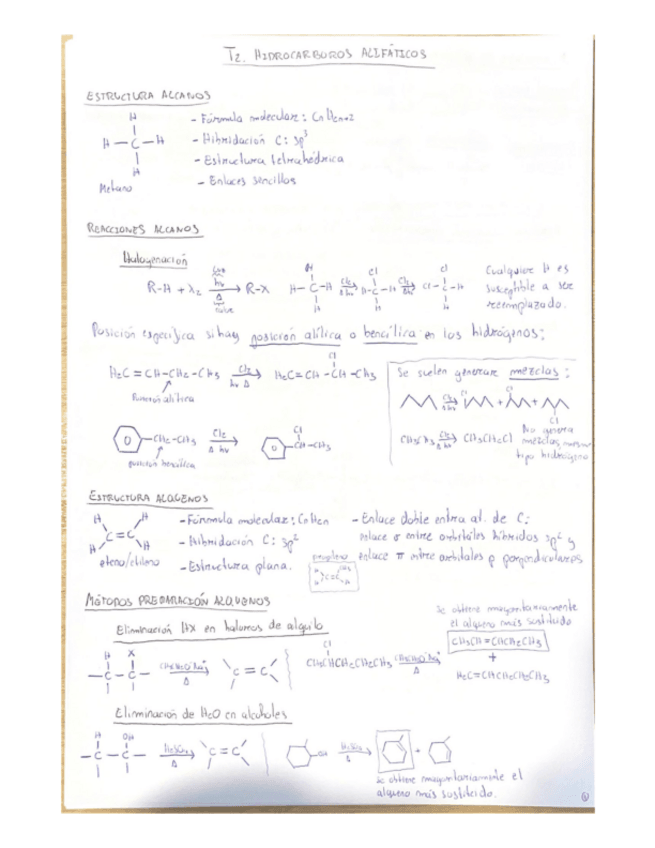 T2. HIDROCARBUROS ALIFÁTICOS
ESTRUCTURA ALCANOS
H
H - C - H
H
Metano
- Fórmula molecular: CnH2n+2
- Hibridación C: sp3
- Estructura tetrahédrica
- Enlaces sencillos
REACCIONES ALCANOS
Halogenación
R-H + X2 → R-X
hν
Δ
calor
H
H - C - H
H
Cl2
Δ hν
Cl
H - C - H
H
Cl2
Δ hν
Cl
Cl - C - H
H
Cualquier H es
susceptible a ser
reemplazado.
Posición específica si hay posición alílica o bencílica en los hidrógenos:
H2C=CH-CH2-CH3
Cl2
hν Δ
Cl
H2C=CH-CH-CH3
Posición alílica
-CH2-CH3
Cl2
Δ hν
Cl
-CH-CH3
posición bencílica
Se suelen generar mezclas:
Cl2
Δ hν
Cl
+
Cl
+
Cl
CH3CH3
Cl2
Δ hν
CH3CH2Cl
No genera
mezclas, mismo
tipo hidrógeno
ESTRUCTURA ALQUENOS
H H
C=C
H H
eteno/etileno
- Fórmula molecular: CnH2n
- Hibridación C: sp2
- Estructura plana.
propileno
- Enlace doble entre at. de C:
enlace σ entre orbitales híbridos sp2 y
enlace π entre orbitales p perpendiculares
MÉTODOS PREPARACIÓN ALQUENOS
Eliminación HX en haluros de alquilo
H X
- C - C -
CH3CH2O-Na+
Δ
C=C
Cl
CH3CHCH2CH2CH3
CH3CH2O-Na+
Δ
Se obtiene mayoritariamente
el alqueno más sustituido
CH3CH=CHCH2CH3
+
H2C=CHCH2CH2CH3
Eliminación de H2O en alcoholes
H OH
- C - C -
H2SO4
Δ
C=C
-OH
H2SO4
Δ
+
Se obtiene mayoritariamente el
alqueno más sustituido.
1